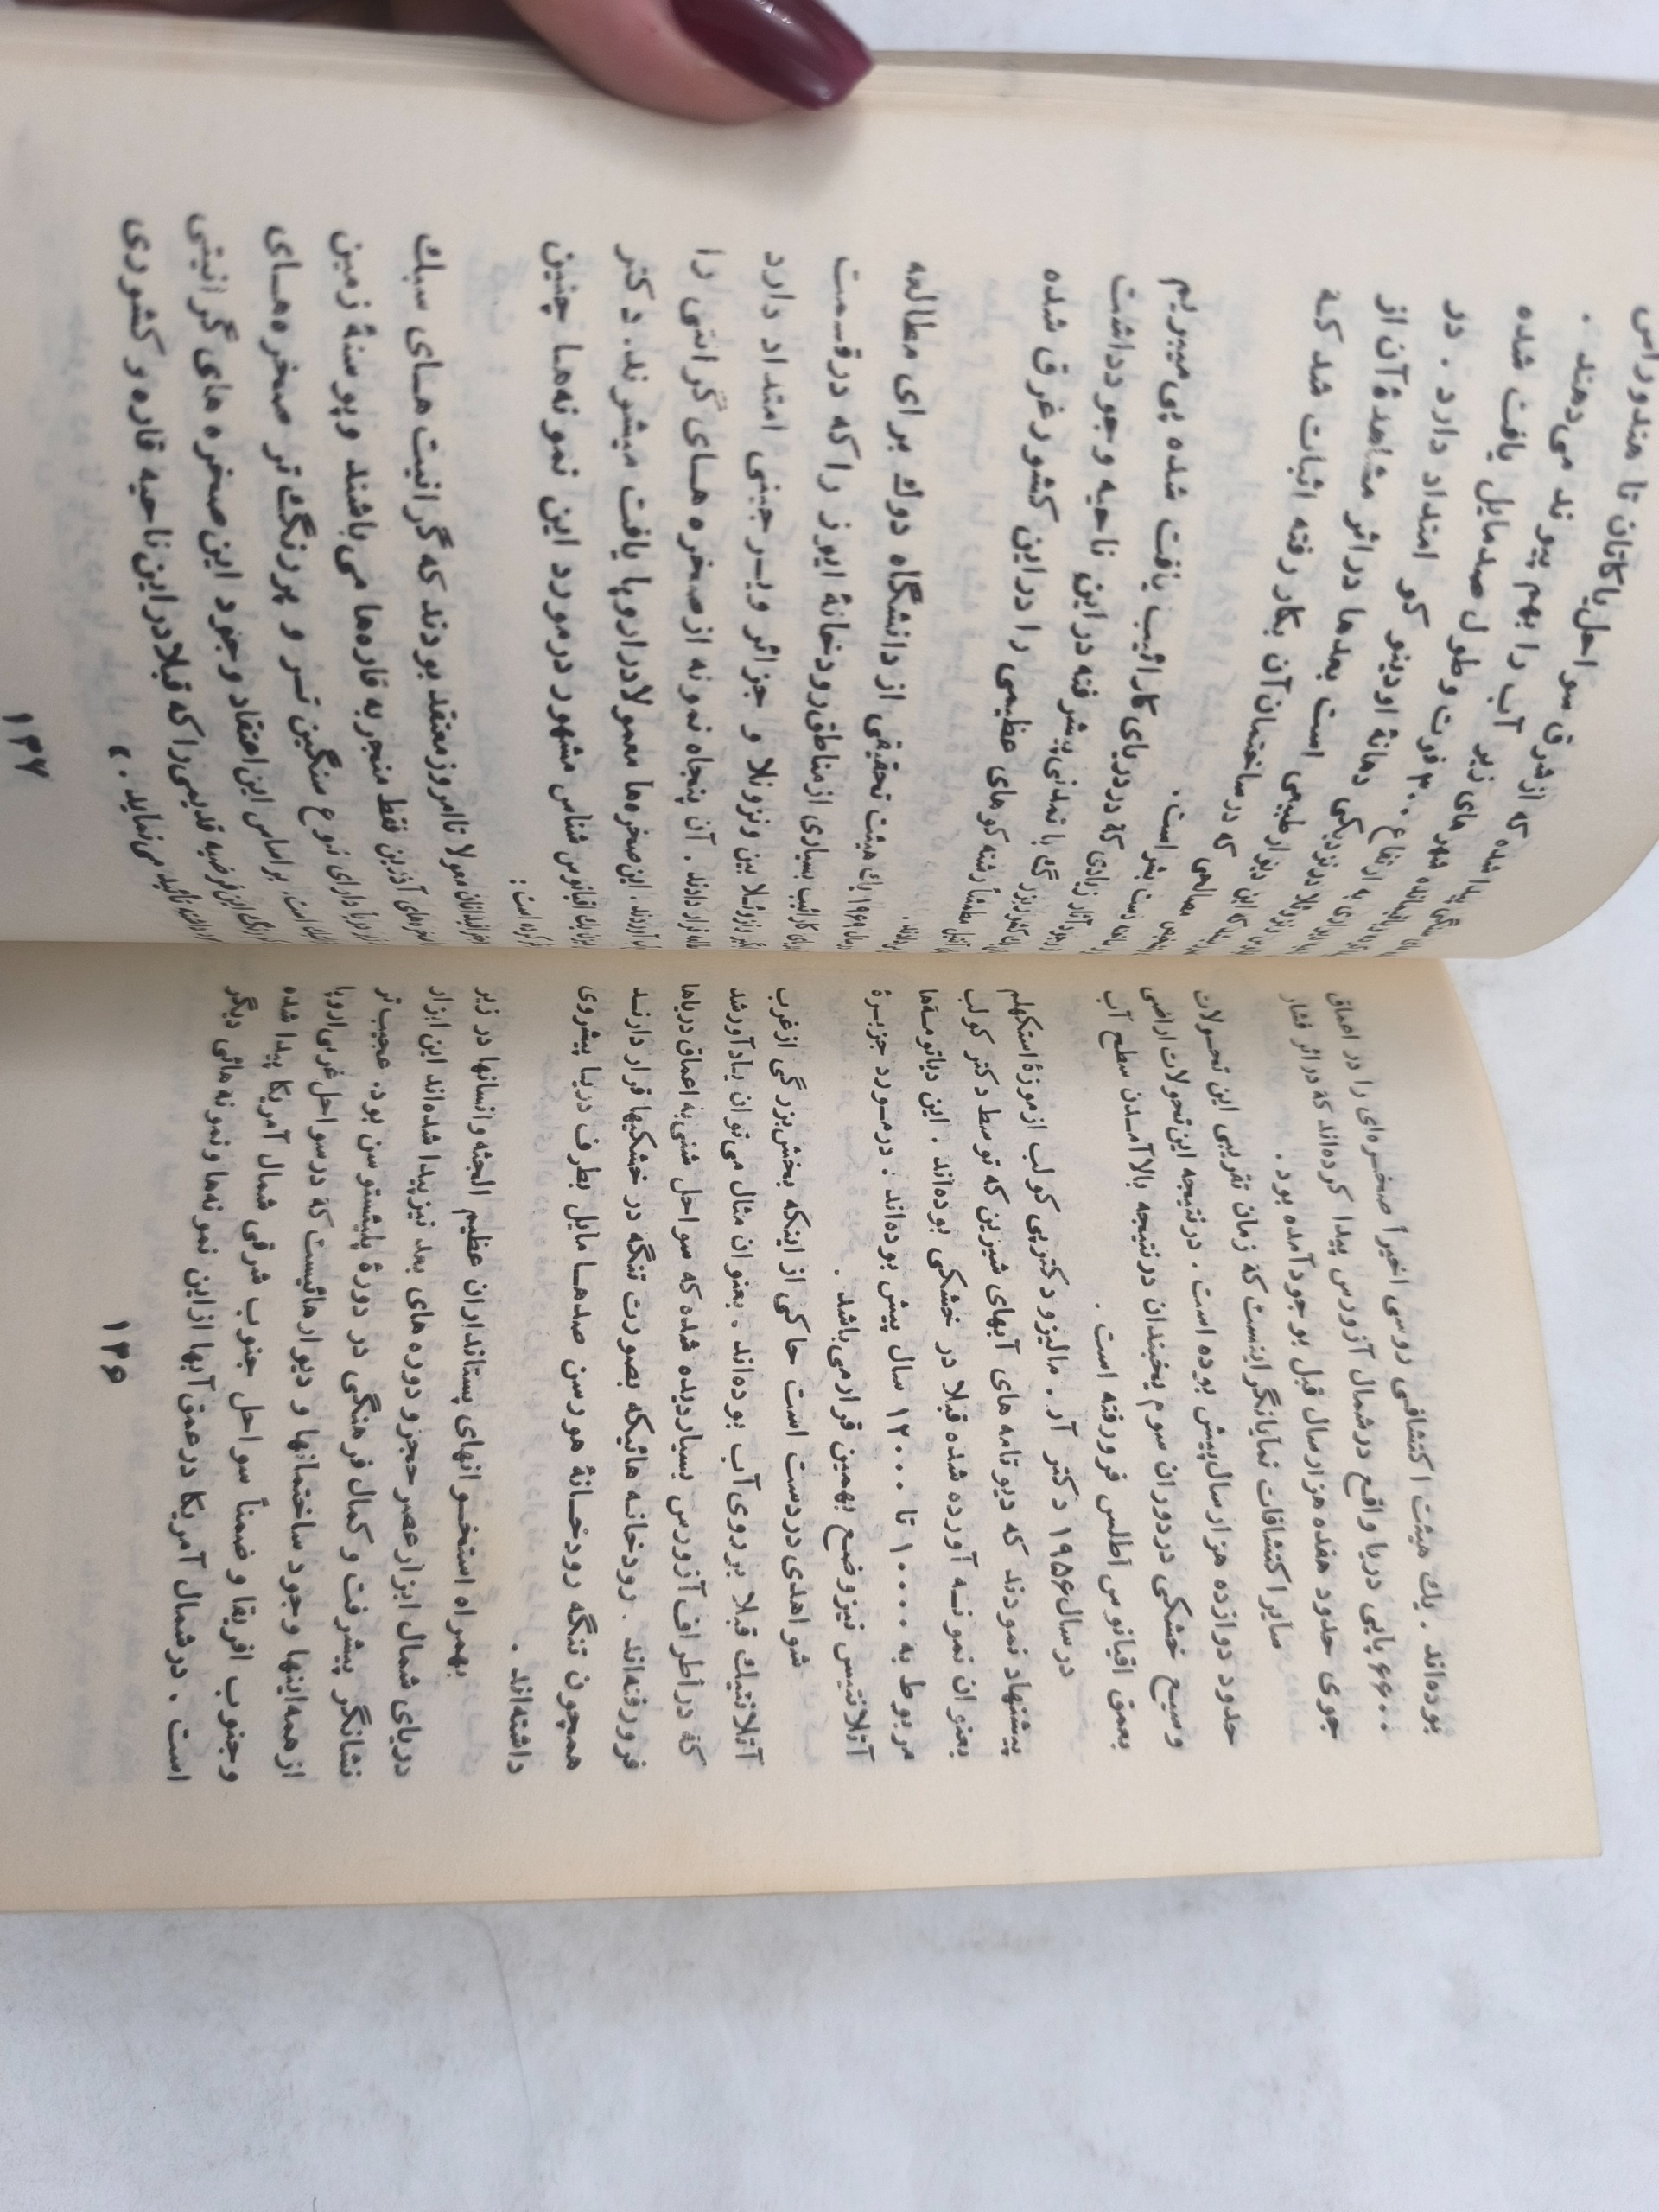 بوده‌اند . یك هیئت اکتشافی روسی اخیراً صخره‌ای را در اعماق
۶۶۰۰ پایی دریا واقع درشمال آزورس پیدا کرده‌اند که در اثر فشار
جوی حدود هفده هزار سال قبل بوجود آمده بود .
سایر اکتشافات نمایانگر اینست که زمان تقریبی این تحولات
حدود دوازده هزار سال پیش بوده است . در نتیجه این تحولات اراضی
وسیع خشکی در دوران سوم یخبندان در نتیجه بالا آمدن سطح آب
بعمق اقیانوس اطلس فرو رفته است .
در سال ۱۹۵۶ دکتر آر . مالیزو دکتر پی کولب از موزهٔ استکهلم
پیشنهاد نمودند که دیوتامه های آبهای شیرین که توسط دکتر کولب
بعنوان نمونه آورده شده قبلا در خشکی بوده‌اند . این دیاتومه‌ها
مربوط به ۱۰۰۰۰ تا ۱۲۰۰۰ سال پیش بوده‌اند : در مورد جزیرهٔ
آتلانتیس نیز وضع بهمین قرار می‌باشد .
شواهدی در دست است حاکی از اینکه بخش بزرگی از غرب
آتلانتیك قبلا بر روی آب بوده‌اند . بعنوان مثال می‌توان یادآور شد
که در اطراف آزورس بسیار دیده شده که سواحل شنی به اعماق دریاها
فرو رفته‌اند . رودخانه هائیکه بصورت تنگه در خشکیها قرار دارند
همچون تنگه رودخانهٔ هورسن صدها مایل بطرف دریا پیشروی
داشته‌اند .
بهمراه استخوانهای پستانداران عظیم الجثه و انسانها در زیر
دریای شمال ابزار عصر حجر و دوره های بعد نیز پیدا شده‌اند این ابزار
نشانگر پیشرفت و کمال فرهنگی در دورهٔ پلیستوسن بود . عجیب‌تر
از همه اینها وجود ساختمانها و دیوارهائیست که در سواحل غربی اروپا
و جنوب افریقا و ضمناً سواحل جنوب شرقی شمال آمریکا پیدا شده
است . درشمال آمریکا در عمق آبها از این نمونه‌ها و نمونه هائی دیگر
۱۳۶
پیدا شده که از شرق سواحل یاکاتان تا هندوراس
را بهم پیوند می‌دهند .
شهر های زیر آب را بهم یافت شده
۳۰ فوت و طول صد مایل امتداد دارد . در
به ارتفاع دهانهٔ اودینو کو در اثر مشاهدهٔ آن از
ونزوئلا در نزدیکی است بعدها اثبات شد که
این دیوار طبیعی است
مصالحی که در ساختمان آن بکار رفته
دست بشر است .
آثار زیادی که در دریای کارائیب یافت شده پی میبریم
بزرگ با تمدنی پیشرفته در این ناحیه وجود داشت
رشته کوه های عظیمی را در این کشور غرق شده
۱۹۶۹ یك هیئت تحقیقی از دانشگاه دوك برای مطالعه
کارائیب بسیاری از مناطق رودخانهٔ ایوز را که در قسمت
بین ونزوئلا و جزائر ویرجینی امتداد دارد
قرار دادند . آن پنجاه نمونه از صخره های گرانیتی را
آوردند . این صخره‌ها معمولا در اروپا یافت میشوند . دکتر
یك اقیانوس شناس مشهور در مورد این نمونه‌ها چنین
کرده است :
معمولا تا امروز معتقد بودند که گرانیت های سبك
آذرین فقط منجر به قاره‌ها می‌باشند و پوستهٔ زمین
دارای نوع سنگین تر و پررنگ تر صخره های
است . بر اساس این اعتقاد وجود این صخره های گرانیتی
این فرضیه قدیمی را که قبلا در این ناحیه قاره و کشوری
تأئید می‌نماید . »
۱۳۷